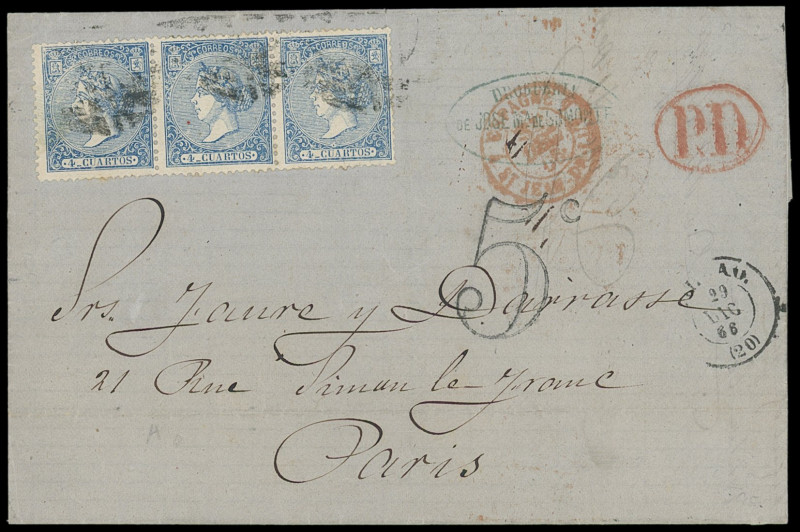 CORREOS CORREOS CORREOS
4 CUARTOS 4 CUARTOS 4 CUARTOS
DROGUERIA
DE JOSE
ESPAGNE
ST JEAN
P.D
5 c
29
DIC
66
(20)
Srs. Jaure y Darrasse
21 Rue Simon le Franc
Paris